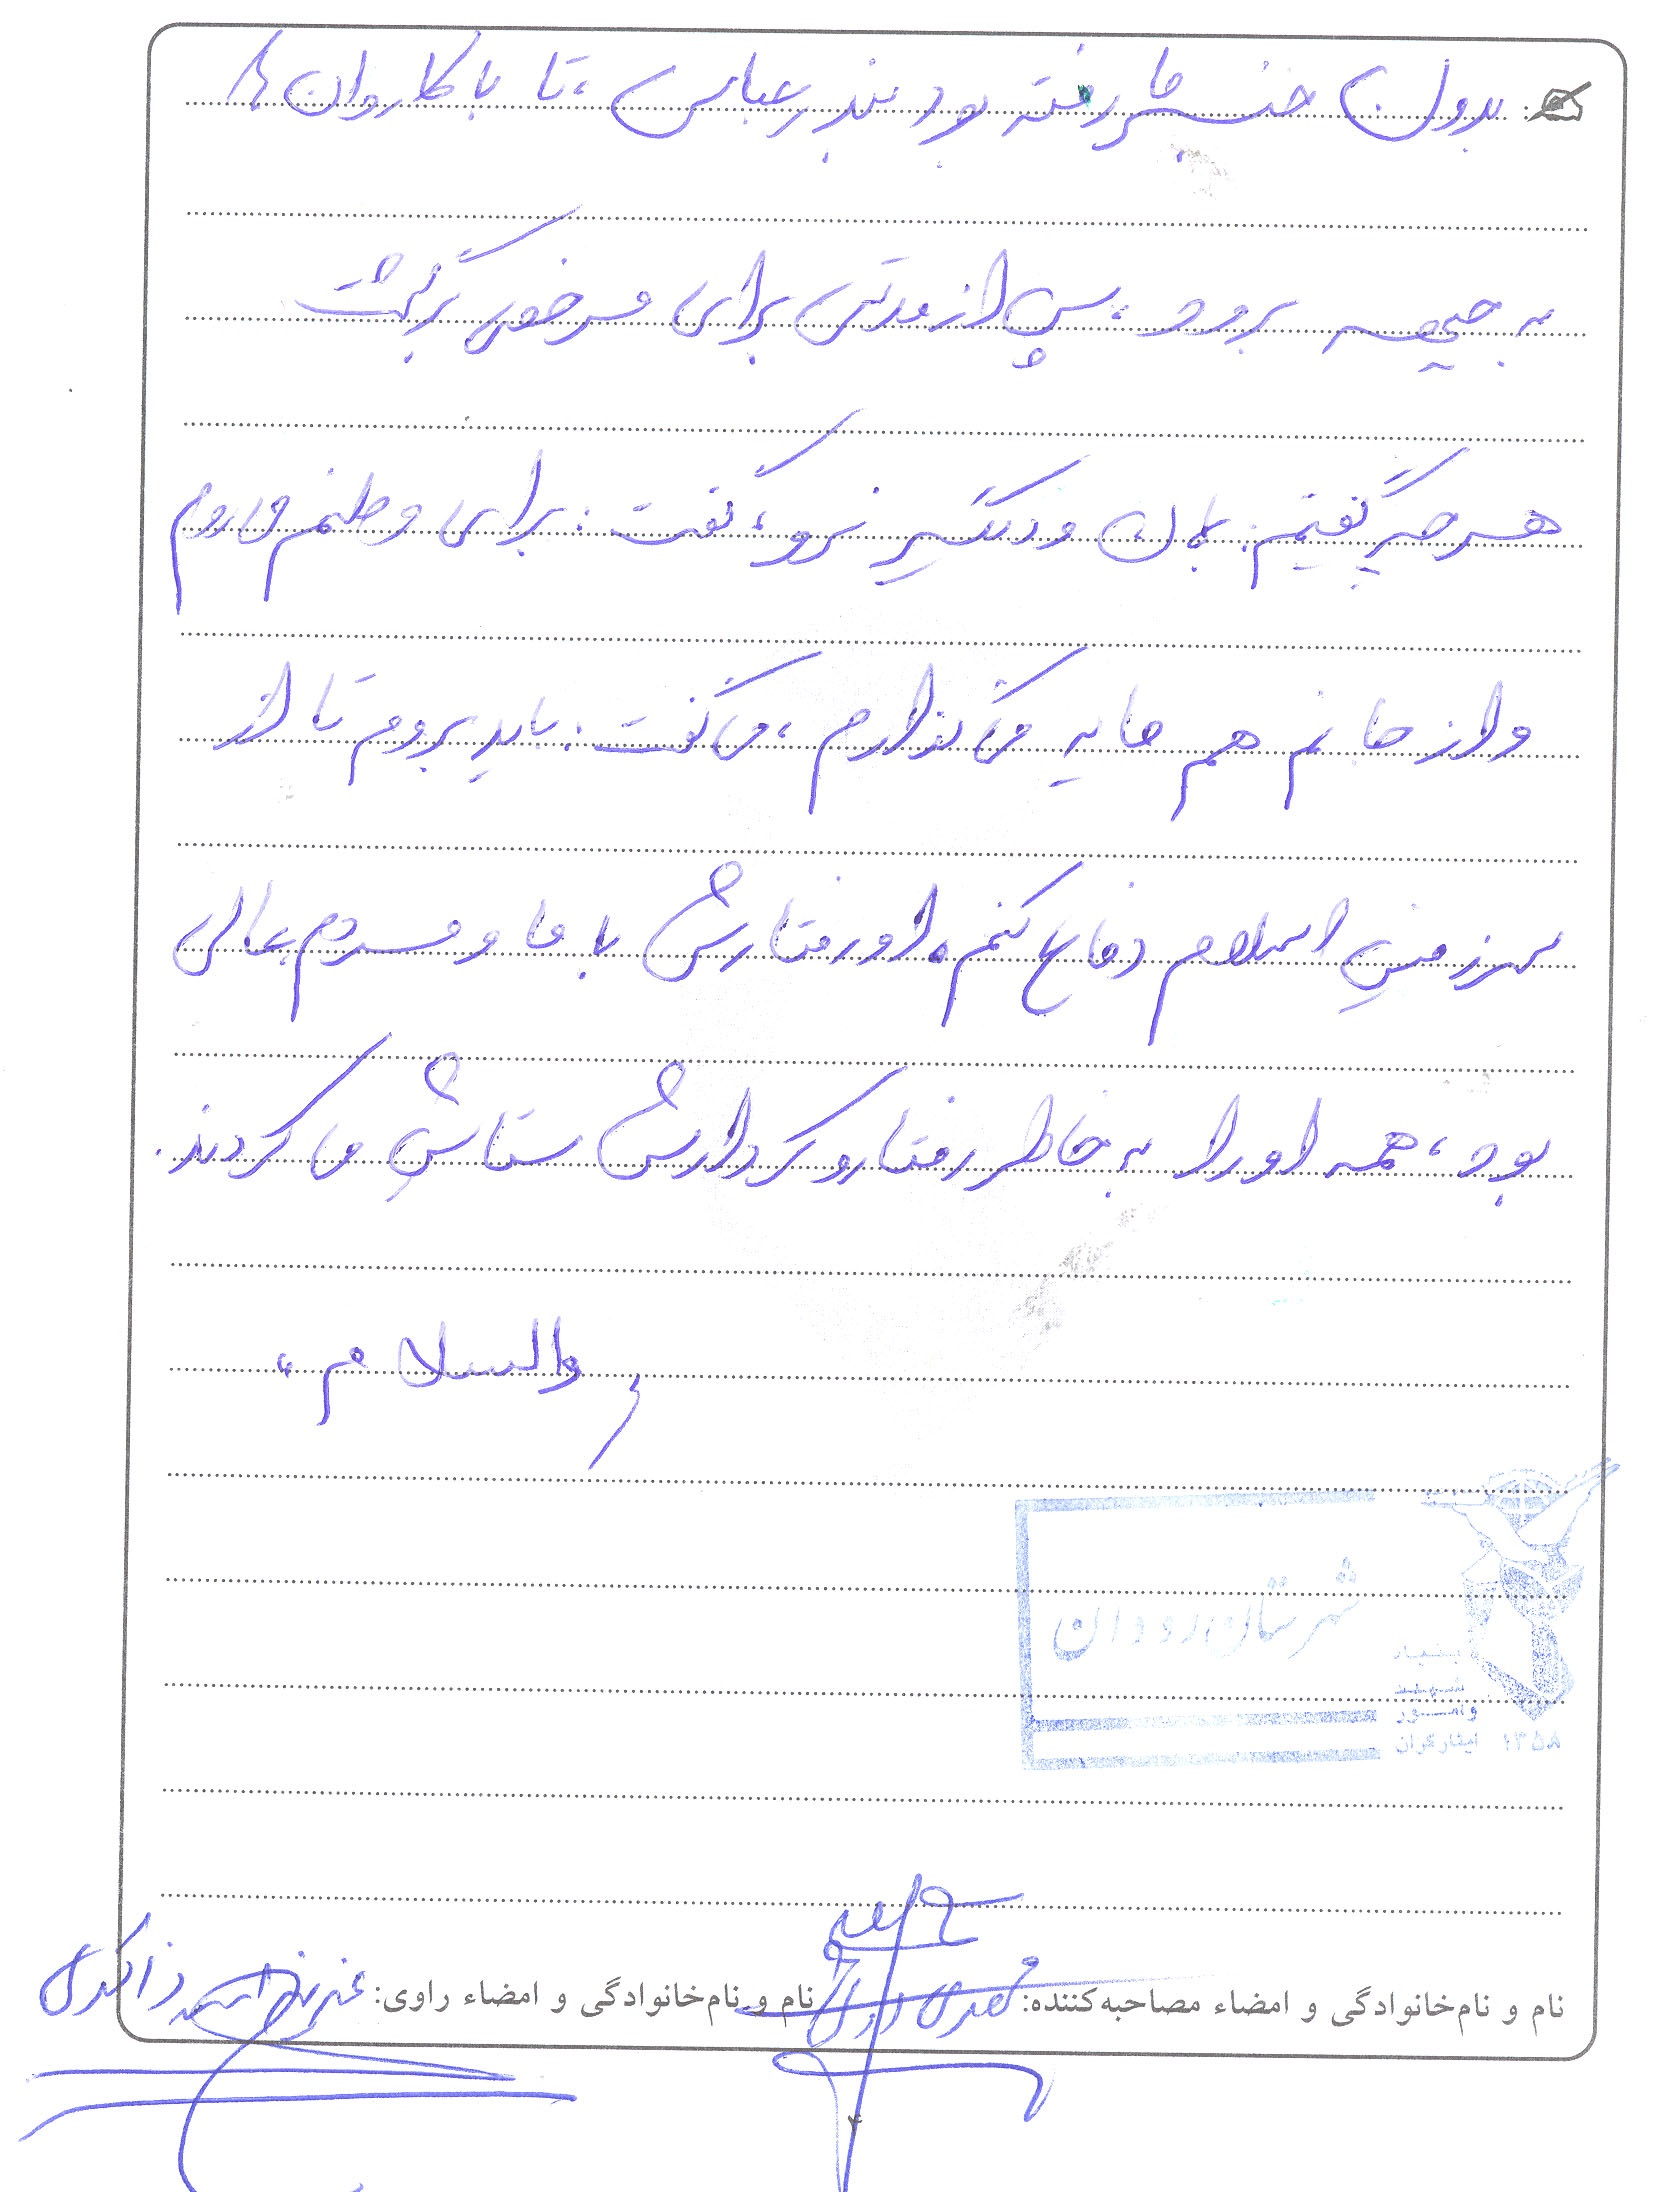 بدون خبر ما رفته بود بندرعباس، تا با کاروان ها
به جبهه برود، پس از مدتی برای مرخصی برگشت
هر چه گفتیم: بمان و دیگر نرو، گفت: برای وطنم می روم
و از جانم هم مایه می گذارم، می گفت: باید بروم تا از
سرزمین اسلام دفاع کنم. او رفتارش با ما و مردم عالی
بود، همه او را به خاطر رفتار و کردارش ستایش می کردند.
والسلام
شهرستان رودان
بنیاد
شهید
و امور
ایثارگران ۱۳۵۸
نام و نام‌خانوادگی و امضاء مصاحبه‌کننده: مهدی
نام و نام‌خانوادگی و امضاء راوی: ذاکری
۴